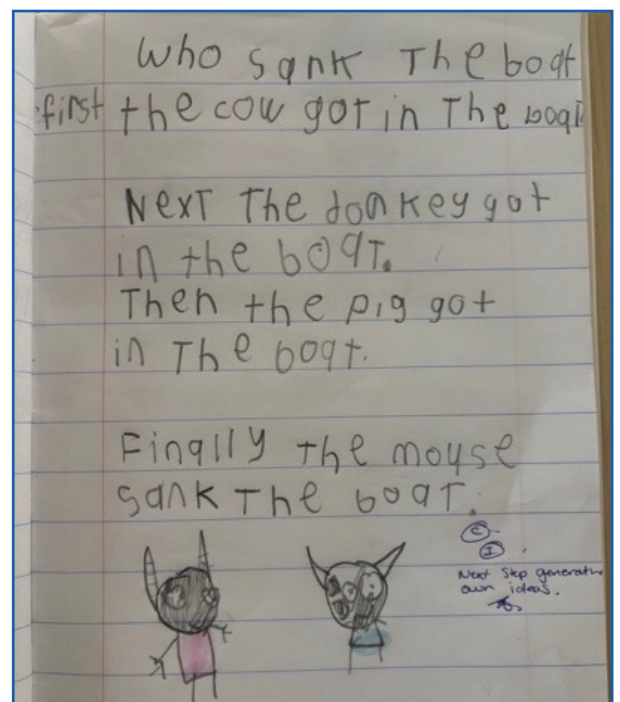 Who sank The boat
first the cow got in The boat
Next The donkey got
in the boat.
Then the pig got
in The boat.
Finally the mouse
sank The boat.
C
I
Next Step generating
own ideas.